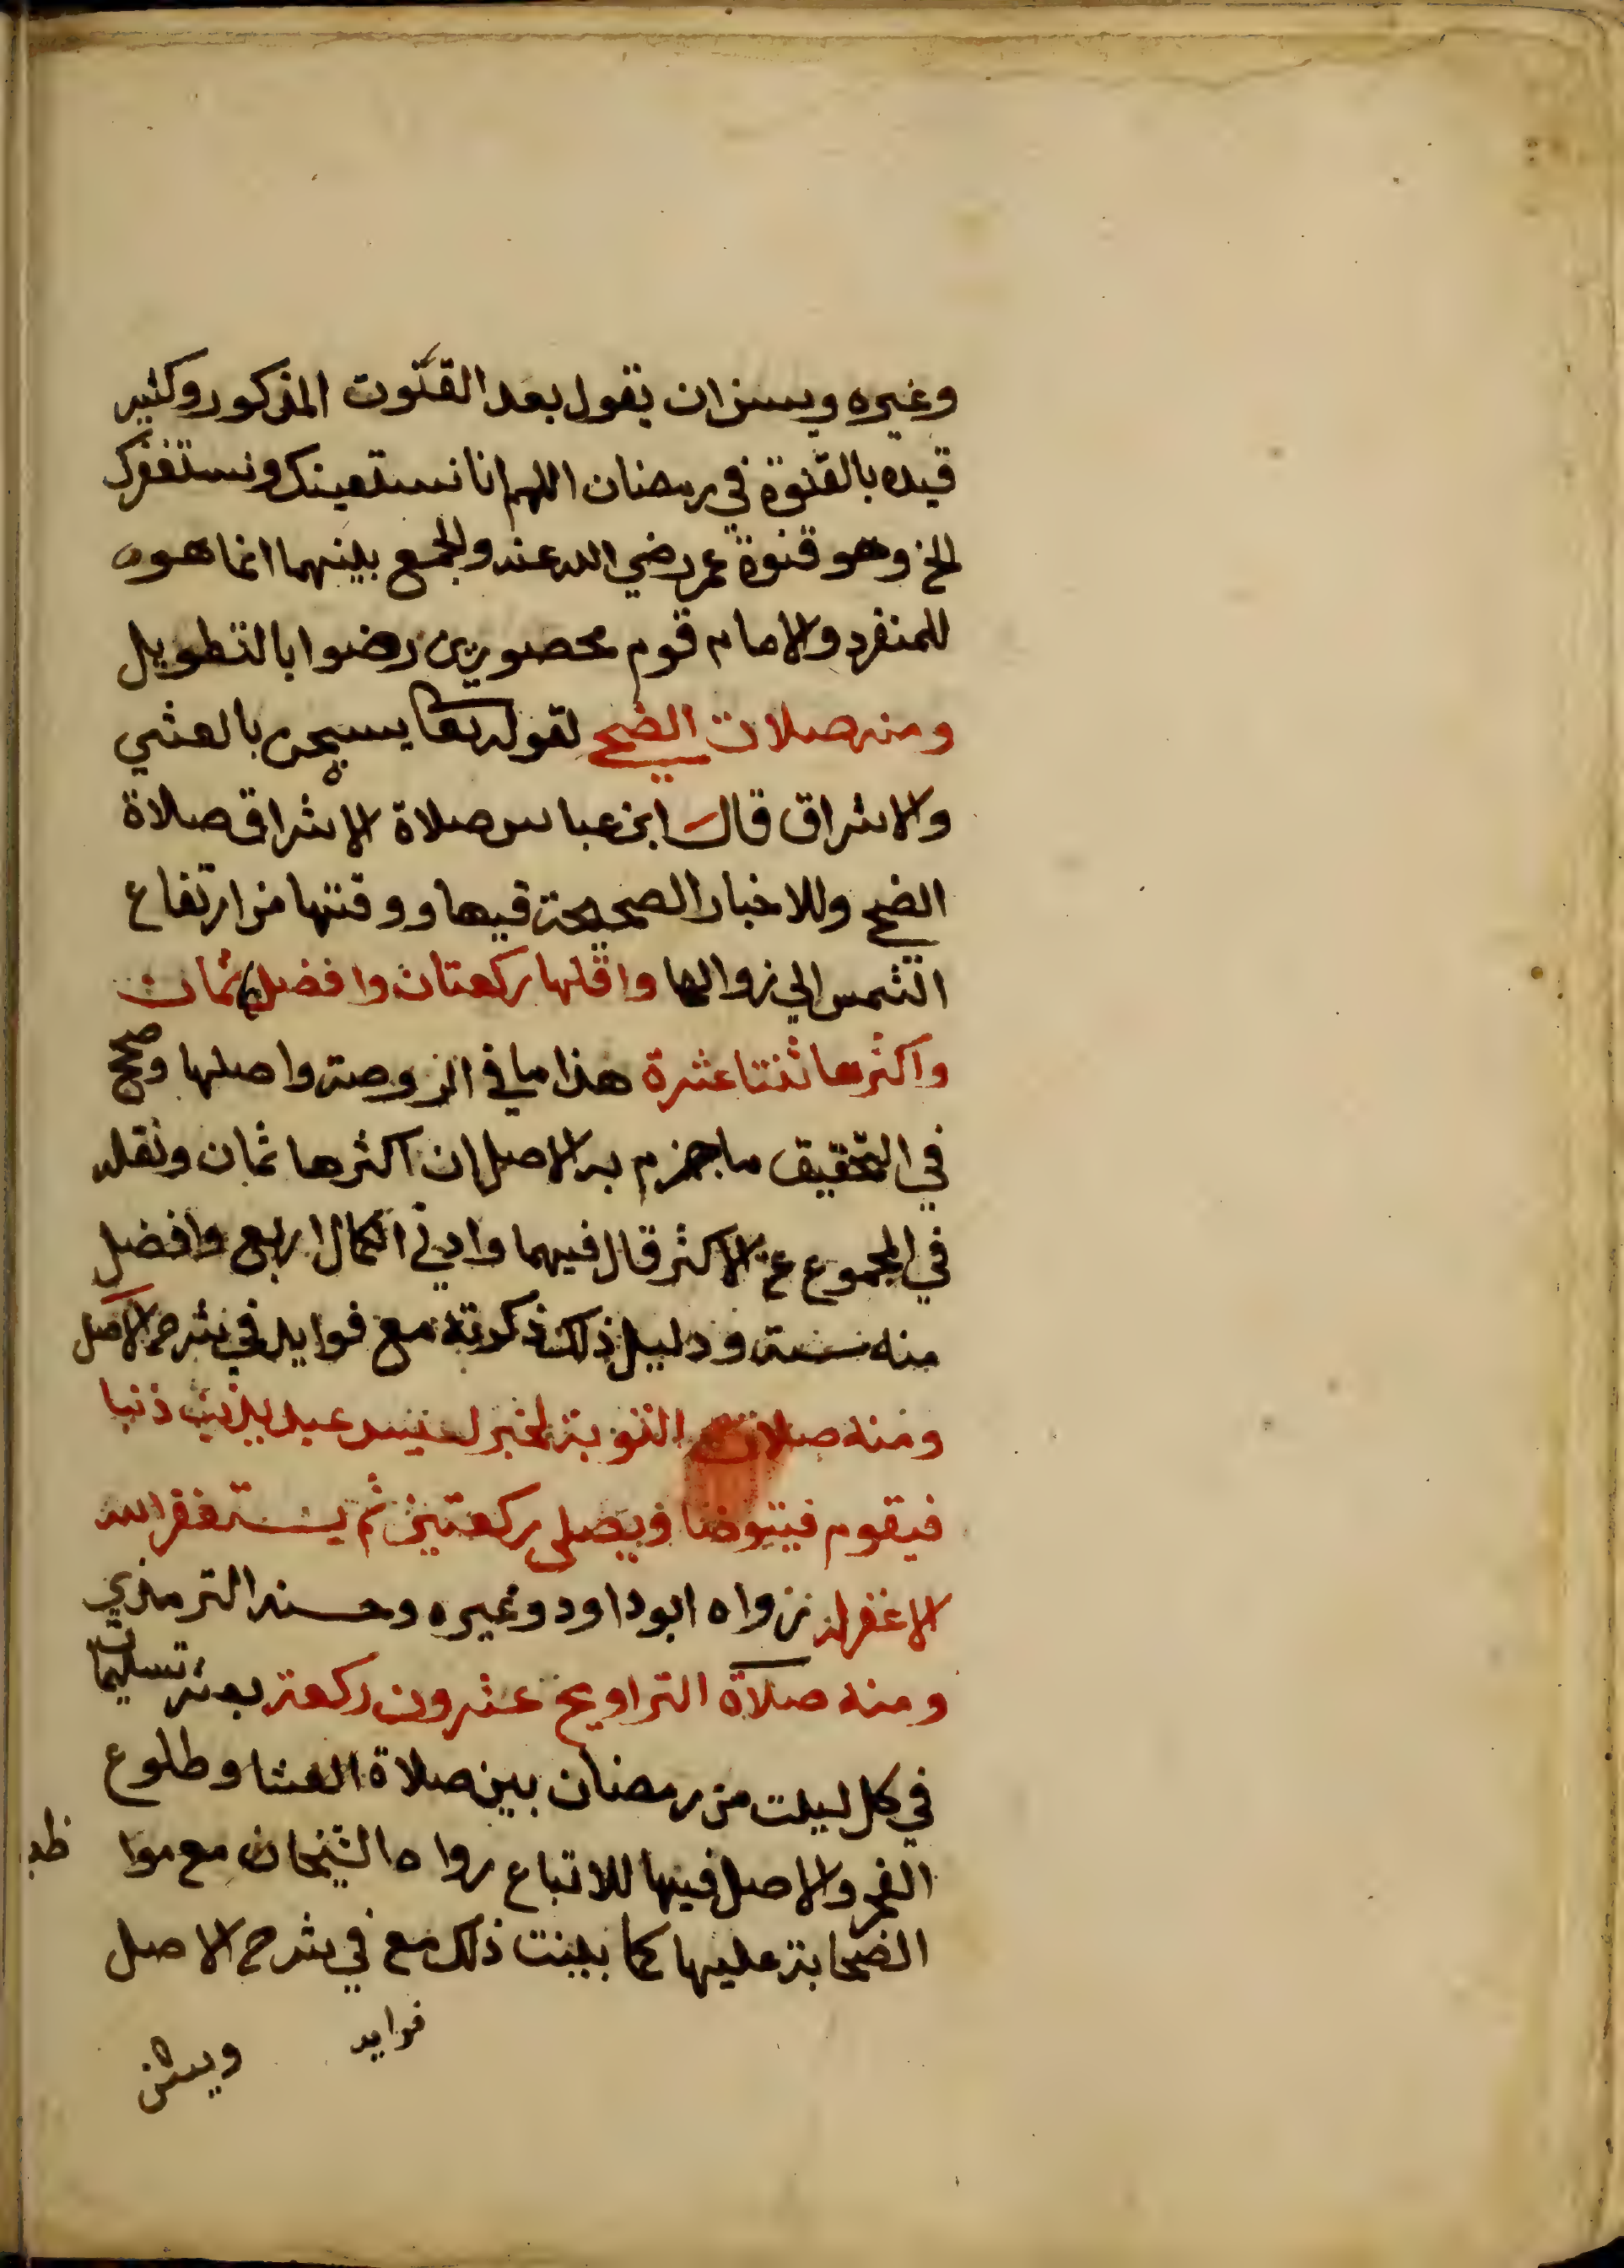 وغيره ويسن ان يقول بعد القنوت المذكور وكثير
قيده بالقنوة في رمضان اللهم انا نستعينك ونستغفرك
الخ وهو قنوة عمر رضي الله عنه والجمع بينهما انما هو
للمنفرد والامام قوم محصورين رضوا بالتطويل
ومنه صلات الضحى لقوله تعا يسبحن بالعشي
والاشراق قال ابن عباس صلاة الاشراق صلاة
الضحى وللاخبار الصحيحة فيها ووقتها من ارتفاع
الشمس الي زوالها واقلها ركعتان وافضلها ثمان
واكثرها ثنتا عشرة هذا ما في الروضة واصلها وصحح
في التحقيق ما جزم به الاصل ان اكثرها ثمان ونقله
في المجموع عن الاكثر قال فيهما وادني الكمال اربع وافضل
منه ستة ودليل ذلك ذكرته مع فوايد في شرح الاصل
ومنه صلات التوبة لخبر ليس عبد يذنب ذنبا
فيقوم فيتوضا ويصلي ركعتين ثم يستغفر الله
الا غفر له رواه ابو داود وغيره وحسنه الترمذي
ومنه صلاة التراويح عشرون ركعة بعشر تسليمات
في كل ليلة من رمضان بين صلاة العشا وطلوع
الفجر والاصل فيها للاتباع رواه الشيخان مع موا ظبة
الصحابة عليها كما بينت ذلك مع في شرح الاصل
فوايد
ويسن